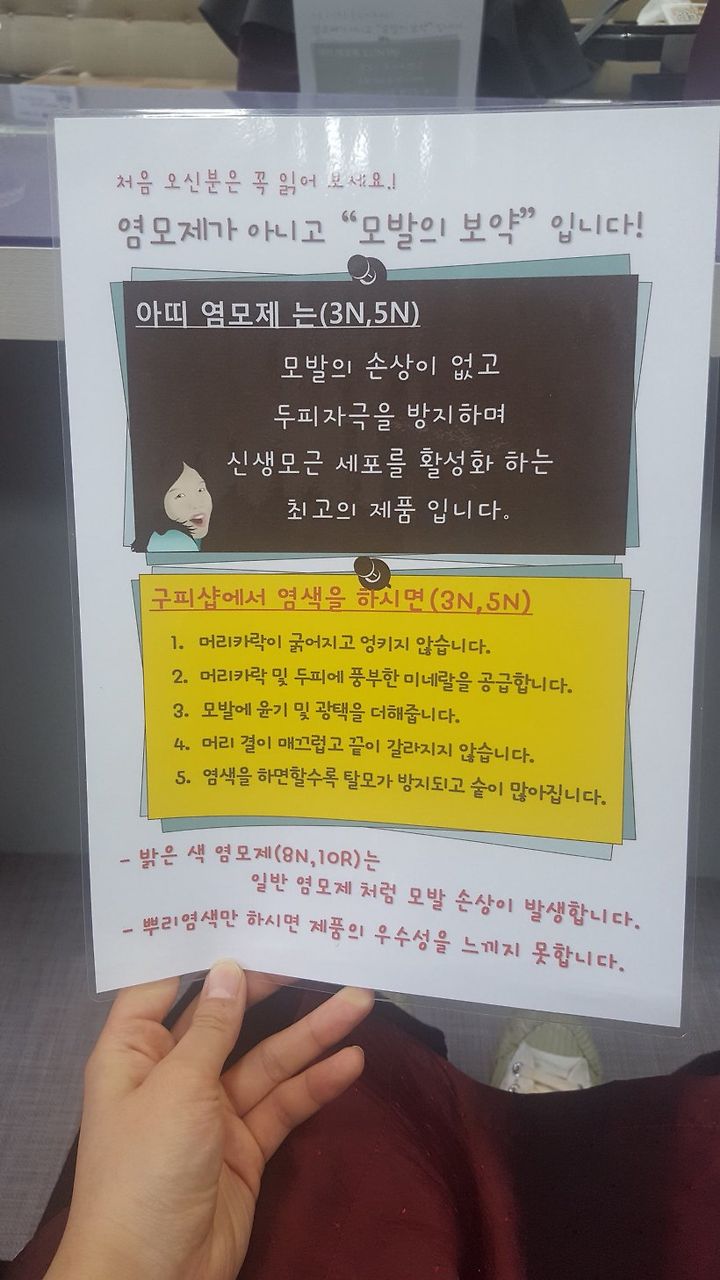 처음 오신분은 꼭 읽어 보세요!
염모제가 아니고 “모발의 보약” 입니다!
아띠 염모제 는(3N,5N)
모발의 손상이 없고
두피자극을 방지하며
신생모근 세포를 활성화 하는
최고의 제품 입니다.
구피샵에서 염색을 하시면(3N,5N)
1. 머리카락이 굵어지고 엉키지 않습니다.
2. 머리카락 및 두피에 풍부한 미네랄을 공급합니다.
3. 모발에 윤기 및 광택을 더해줍니다.
4. 머리 결이 매끄럽고 끝이 갈라지지 않습니다.
5. 염색을 하면할수록 탈모가 방지되고 숱이 많아집니다.
- 밝은 색 염모제(8N,10R)는
일반 염모제 처럼 모발 손상이 발생합니다.
- 뿌리염색만 하시면 제품의 우수성을 느끼지 못합니다.